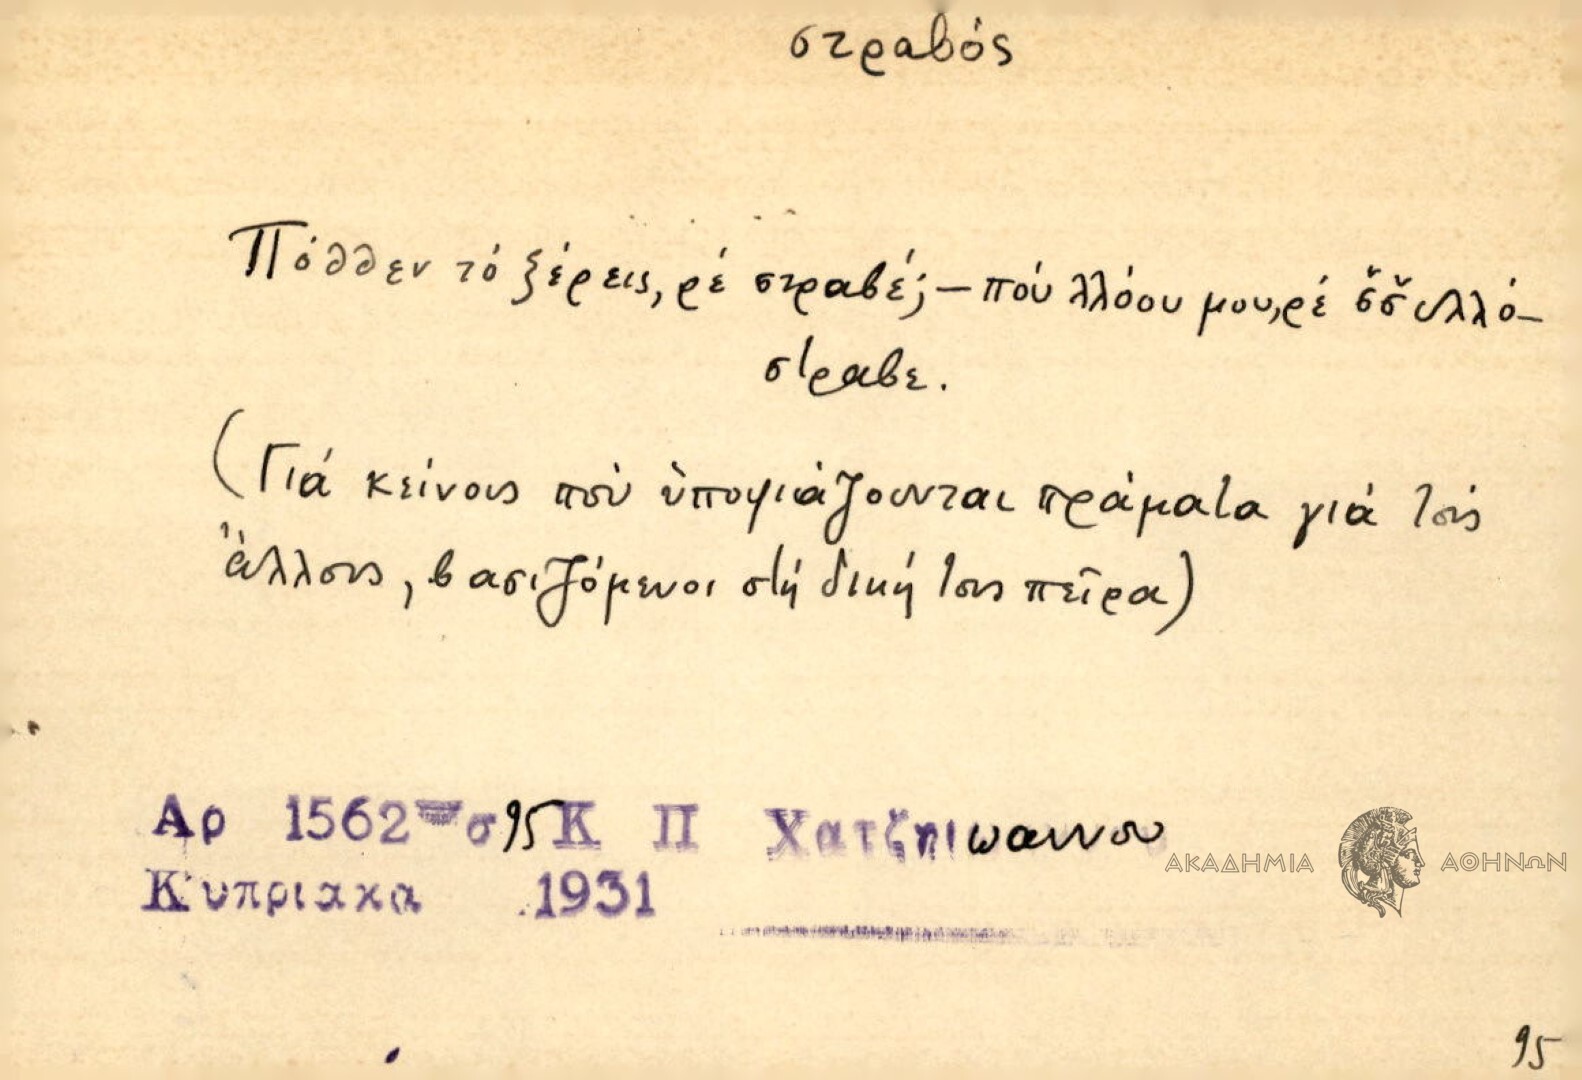 στραβός
Πόθθεν τό ξέρεις, ρέ στραβέ; – πού λλόου μου, ρέ σ̌σ̌υλλό-
στραβε.
(Γιά κείνους πού ὑποψιάζουνται πράματα γιά τούς
ἄλλους, βασιζόμενοι στή δική τους πεῖρα)
Αρ 1562 σ 95 Κ Π Χατζηιωαννου
Κυπριακα 1931
ΑΚΑΔΗΜΙΑ ΑΘΗΝΩΝ
95